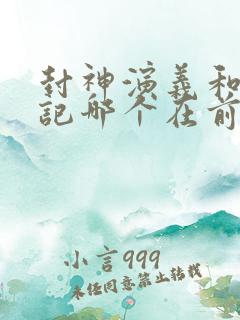 封神演义和
记哪个在前
小言999
未经同意禁止转载